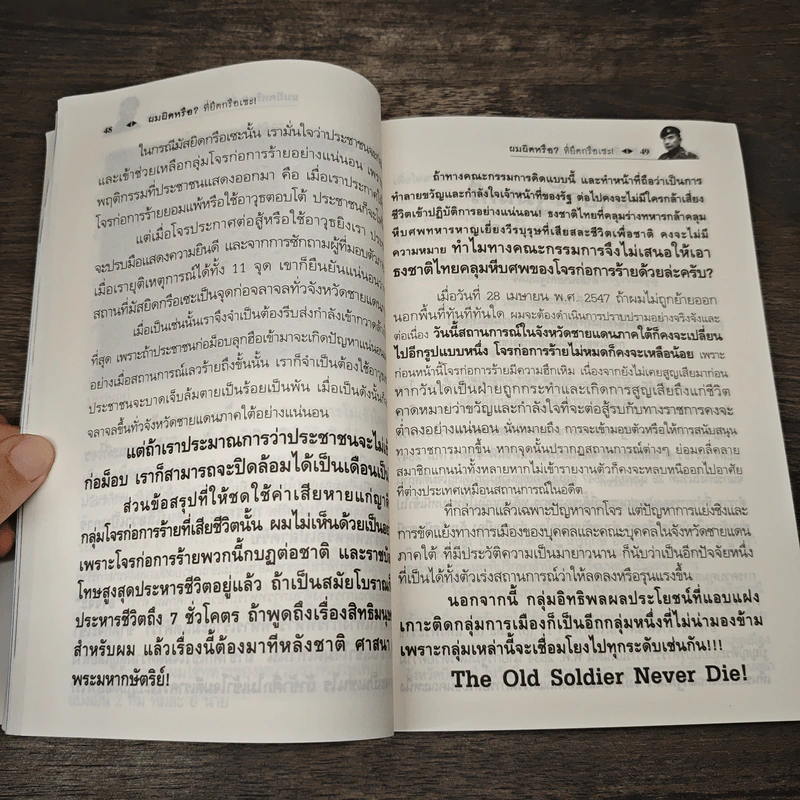 48 ◂▸ ผมผิดหรือ? ที่ยึดกรือเซะ!
ในกรณีมัสยิดกรือเซะนั้น เรามั่นใจว่าประชาชนจะ
และเข้าช่วยเหลือกลุ่มโจรก่อการร้ายอย่างแน่นอน
พฤติกรรมที่ประชาชนแสดงออกมา คือ เมื่อเราประกาศให้
โจรก่อการร้ายยอมแพ้หรือใช้อาวุธตอบโต้ ประชาชนก็จะ
แต่เมื่อโจรประกาศต่อสู้หรือใช้อาวุธยิงเรา
จะปรบมือแสดงความยินดี และจากการซักถามผู้ที่มอบตัว
เมื่อเรายุติเหตุการณ์ได้ทั้ง 11 จุด เขาก็ยืนยันแน่นอนว่า
สถานที่มัสยิดกรือเซะเป็นจุดก่อจลาจลทั่วจังหวัดชายแดน
เมื่อเป็นเช่นนั้นเราจึงจำเป็นต้องรีบส่งกำลังเข้ากวาดล้าง
ที่สุด เพราะถ้าประชาชนก่อม็อบลุกฮือเข้ามาจะเกิดปัญหาแน่นอน
อย่างเมื่อสถานการณ์เลวร้ายถึงขั้นนั้น เราก็จำเป็นต้องใช้อาวุธ
ประชาชนจะบาดเจ็บล้มตายเป็นร้อยเป็นพัน เมื่อเป็นดังนั้นก็
จลาจลขึ้นทั่วจังหวัดชายแดนภาคใต้อย่างแน่นอน
แต่ถ้าเราประมาณการว่าประชาชนจะไม่
ก่อม็อบ เราก็สามารถจะปิดล้อมได้เป็นเดือนเป็น
ส่วนข้อสรุปที่ให้ชดใช้ค่าเสียหายแก่ญาติ
กลุ่มโจรก่อการร้ายที่เสียชีวิตนั้น ผมไม่เห็นด้วยเป็น
เพราะโจรก่อการร้ายพวกนี้กบฏต่อชาติ และราช
โทษสูงสุดประหารชีวิตอยู่แล้ว ถ้าเป็นสมัยโบราณ
ประหารชีวิตถึง 7 ชั่วโคตร ถ้าพูดถึงเรื่องสิทธิมนุษ
สำหรับผม แล้วเรื่องนี้ต้องมาทีหลังชาติ ศาสนา
พระมหากษัตริย์!
ผมผิดหรือ? ที่ยึดกรือเซะ! ◂▸ 49
ถ้าทางคณะกรรมการคิดแบบนี้ และทำหน้าที่ถือว่าเป็นการ
ทำลายขวัญและกำลังใจเจ้าหน้าที่ของรัฐ ต่อไปคงจะไม่มีใครกล้าเสี่ยง
ชีวิตเข้าปฏิบัติการอย่างแน่นอน! ธงชาติไทยที่คลุมร่างทหารกล้าคลุม
หีบศพทหารหาญเยี่ยงวีรบุรุษที่เสียสละชีวิตเพื่อชาติ คงจะไม่มี
ความหมาย ทำไมทางคณะกรรมการจึงไม่เสนอให้เอา
ธงชาติไทยคลุมหีบศพของโจรก่อการร้ายด้วยล่ะครับ?
เมื่อวันที่ 28 เมษายน พ.ศ. 2547 ถ้าผมไม่ถูกย้ายออก
นอกพื้นที่ทันทีทันใด ผมจะต้องดำเนินการปราบปรามอย่างจริงจังและ
ต่อเนื่อง วันนี้สถานการณ์ในจังหวัดชายแดนภาคใต้ก็คงจะเปลี่ยน
ไปอีกรูปแบบหนึ่ง โจรก่อการร้ายไม่หมดก็คงจะเหลือน้อย เพราะ
ก่อนหน้านี้โจรก่อการร้ายมีความฮึกเหิม เนื่องจากยังไม่เคยสูญเสียมาก่อน
หากวันใดเป็นฝ่ายถูกกระทำและเกิดการสูญเสียถึงแก่ชีวิต
คาดหมายว่าขวัญและกำลังใจที่จะต่อสู้รบกับทางราชการคงจะ
ต่ำลงอย่างแน่นอน นั่นหมายถึง การจะเข้ามอบตัวหรือให้การสนับสนุน
ทางราชการมากขึ้น หากจุดนั้นปรากฏสถานการณ์ต่างๆ ย่อมคลี่คลาย
สมาชิกแกนนำทั้งหลายหากไม่เข้ารายงานตัวก็คงจะหลบหนีออกไปอาศัย
ที่ต่างประเทศเหมือนสถานการณ์ในอดีต
ที่กล่าวมาแล้วเฉพาะปัญหาจากโจร แต่ปัญหาการแย่งชิงและ
การขัดแย้งทางการเมืองของบุคคลและคณะบุคคลในจังหวัดชายแดน
ภาคใต้ ที่มีประวัติความเป็นมายาวนาน ก็นับว่าเป็นอีกปัจจัยหนึ่ง
ที่เป็นได้ทั้งตัวเร่งสถานการณ์ว่าให้ลดลงหรือรุนแรงขึ้น
นอกจากนี้ กลุ่มอิทธิพลผลประโยชน์ที่แอบแฝง
เกาะติดกลุ่มการเมืองก็เป็นอีกกลุ่มหนึ่งที่ไม่น่ามองข้าม
เพราะกลุ่มเหล่านี้จะเชื่อมโยงไปทุกระดับเช่นกัน!!!
The Old Soldier Never Die!